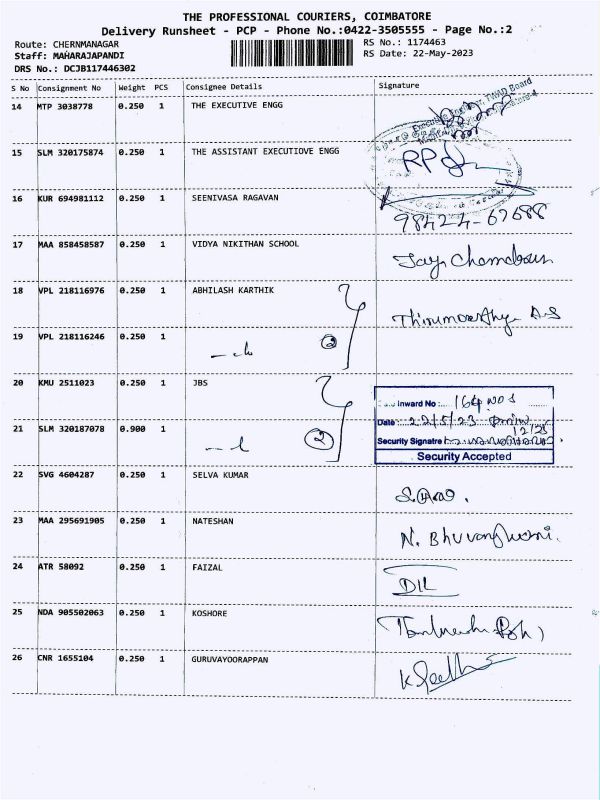 THE PROFESSIONAL COURIERS, COIMBATORE
Delivery Runsheet - PCP - Phone No.:0422-3505555 - Page No.:2
Route: CHERNMANAGAR
RS No.: 1174463
Staff: MAHARAJAPANDI
RS Date: 22-May-2023
DRS No.: DCJB117446302
S No Consignment No Weight PCS Consignee Details Signature
14 MTP 3038778 0.250 1 THE EXECUTIVE ENGG
15 SLM 320175874 0.250 1 THE ASSISTANT EXECUTIOVE ENGG
16 KUR 694981112 0.250 1 SEENIVASA RAGAVAN
98424-67688
17 MAA 858458587 0.250 1 VIDYA NIKITHAN SCHOOL
18 VPL 218116976 0.250 1 ABHILASH KARTHIK
19 VPL 218116246 0.250 1
2
20 KMU 2511023 0.250 1 JBS
Inward No : 164
Date : 22/5/23
21 SLM 320187078 0.900 1
2
Security Signatre
Security Accepted
22 SVG 4604287 0.250 1 SELVA KUMAR
23 MAA 295691905 0.250 1 NATESHAN
24 ATR 58092 0.250 1 FAIZAL
25 NDA 905502063 0.250 1 KOSHORE
26 CNR 1655104 0.250 1 GURUVAYOORAPPAN